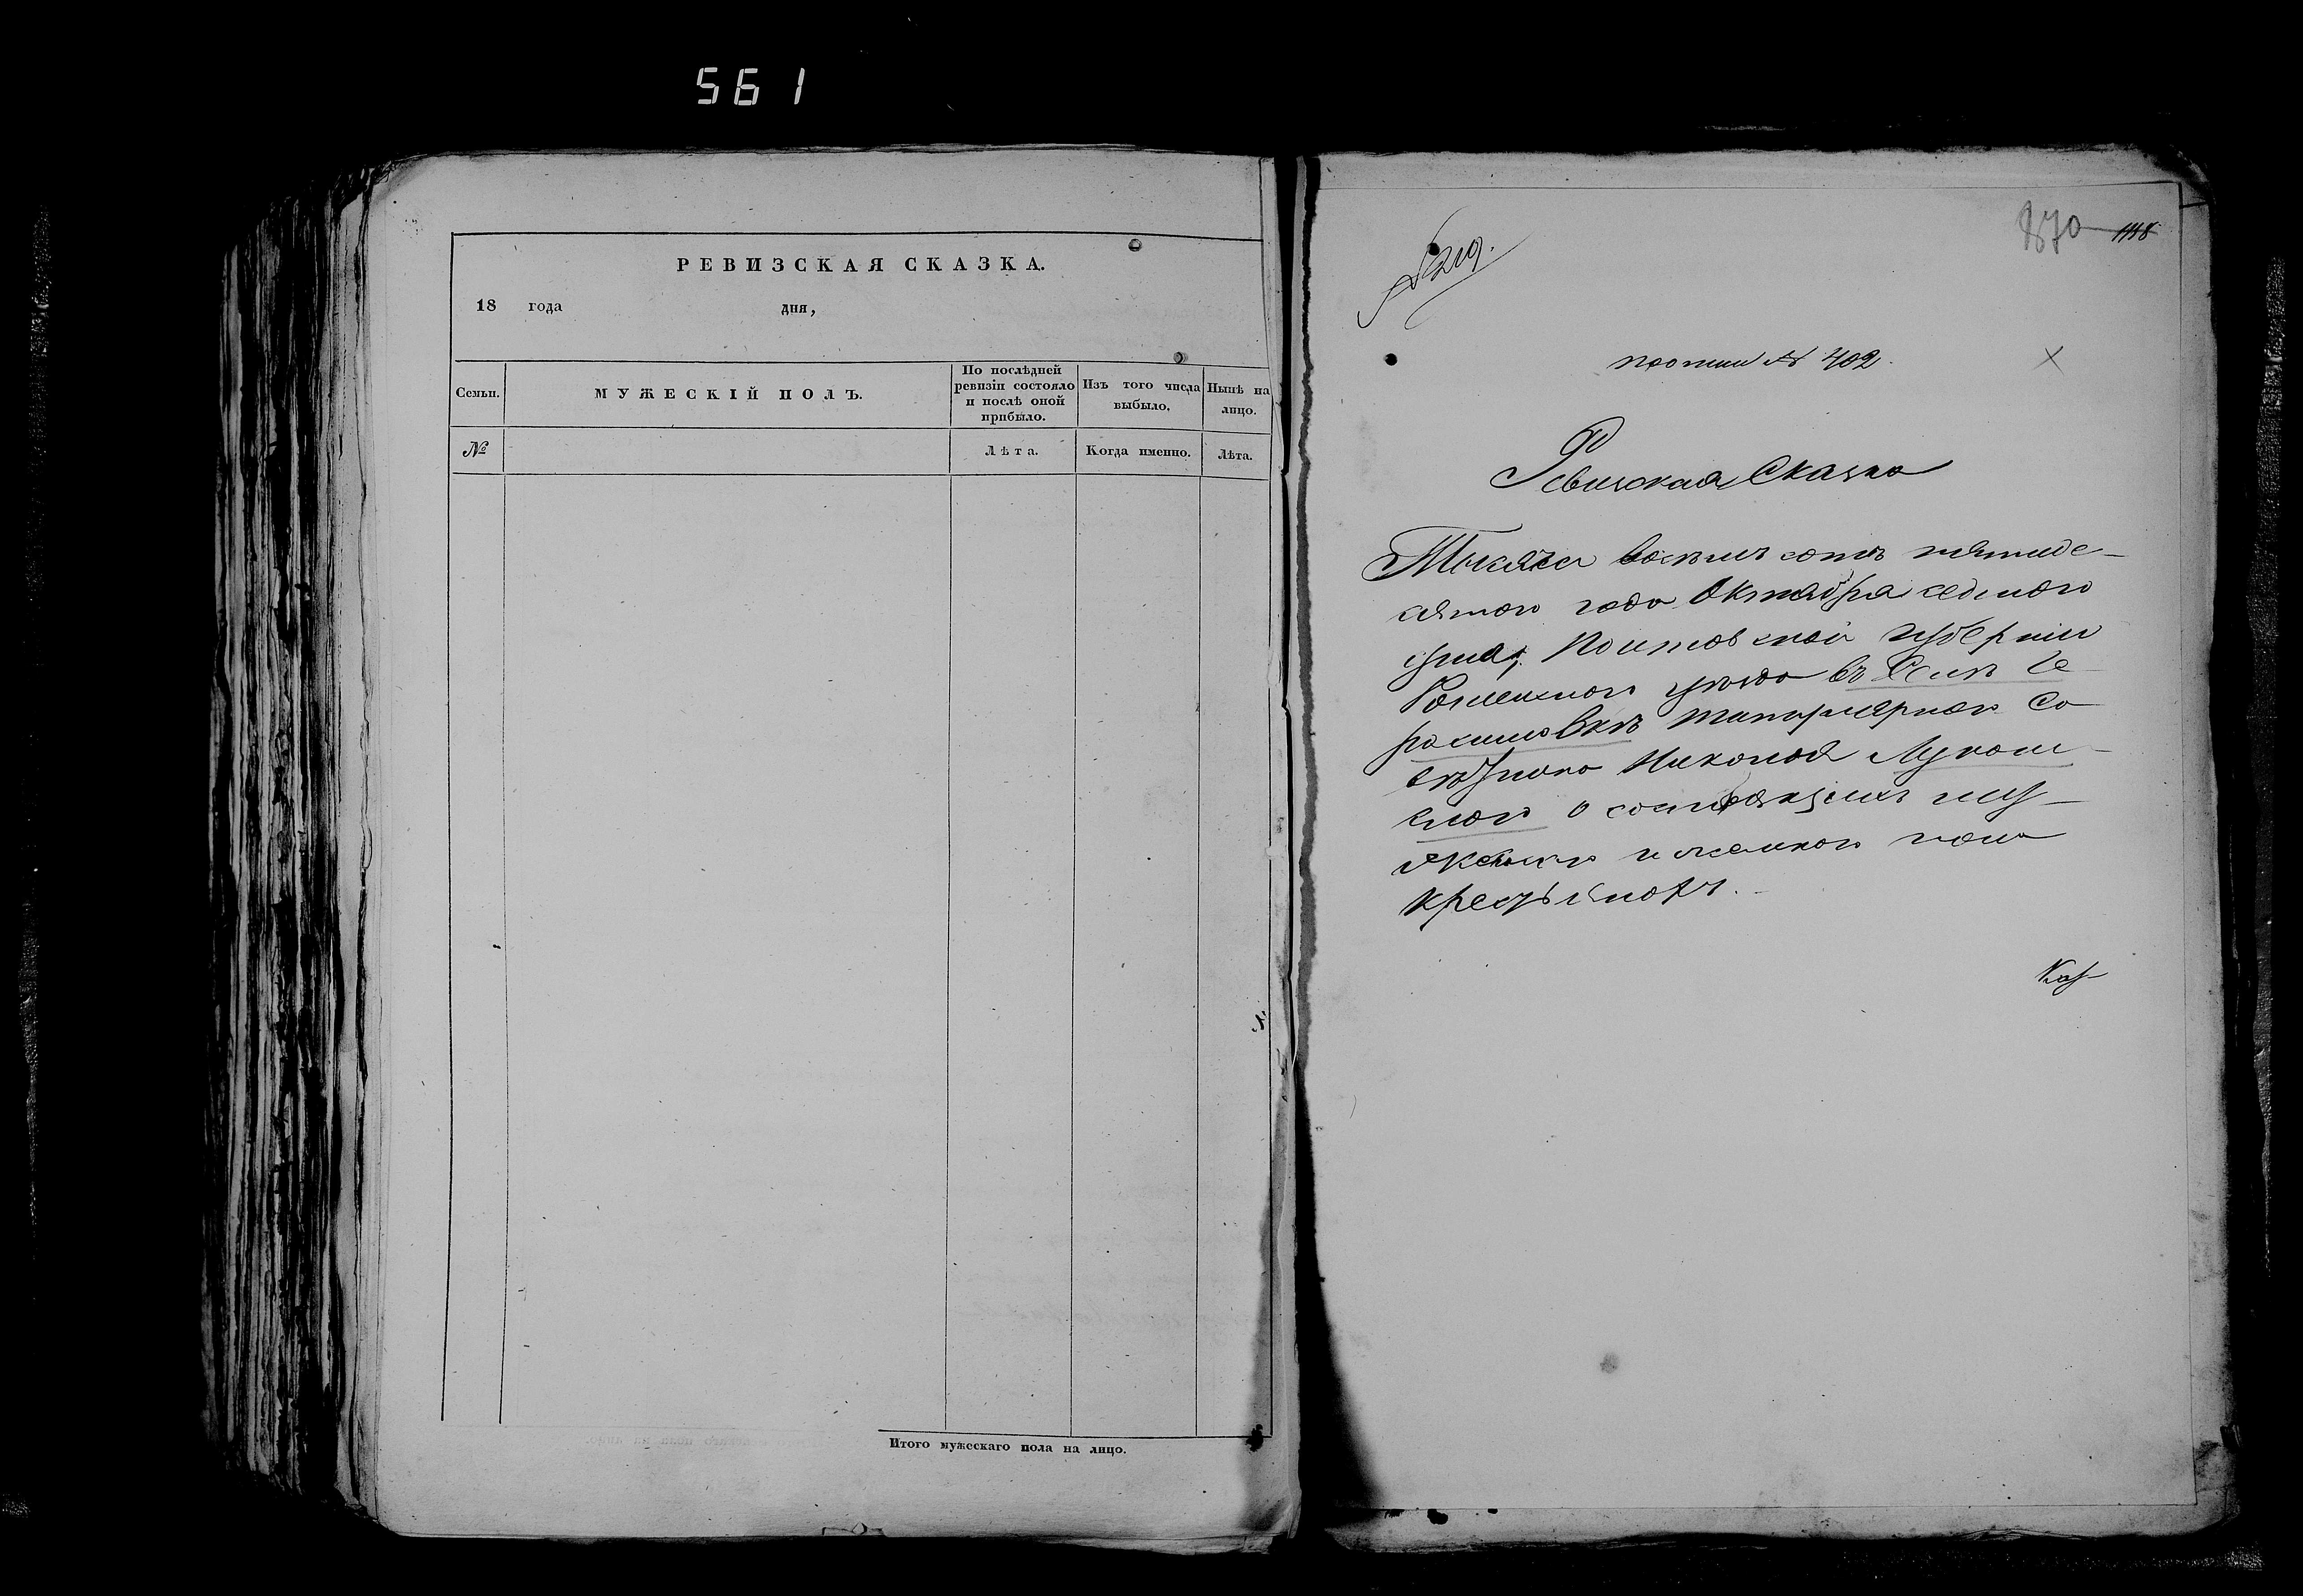 561
РЕВИЗСКАЯ СКАЗКА.
18 года дня,
Семьи.
МУЖЕСКІЙ ПОЛЪ.
По послѣдней
ревизіи состояло
и послѣ оной
прибыло.
Изъ того числа
выбыло.
Нынѣ на
лицо.
№
Лѣта.
Когда именно.
Лѣта.
Итого мужескаго пола на лицо.
870
№ 219.
№ 402.
Ревизская Сказка
Тысяча восемь сотъ пятиде-
сятого года Октября седмого
дня, Полтовской губерніи
Роменского уѣзда въ Селѣ Ге-
расимовкѣ титулярного Со-
вѣтника Николая Луком-
ского о состоящихъ му-
жеского и женского пола
крестьянахъ.